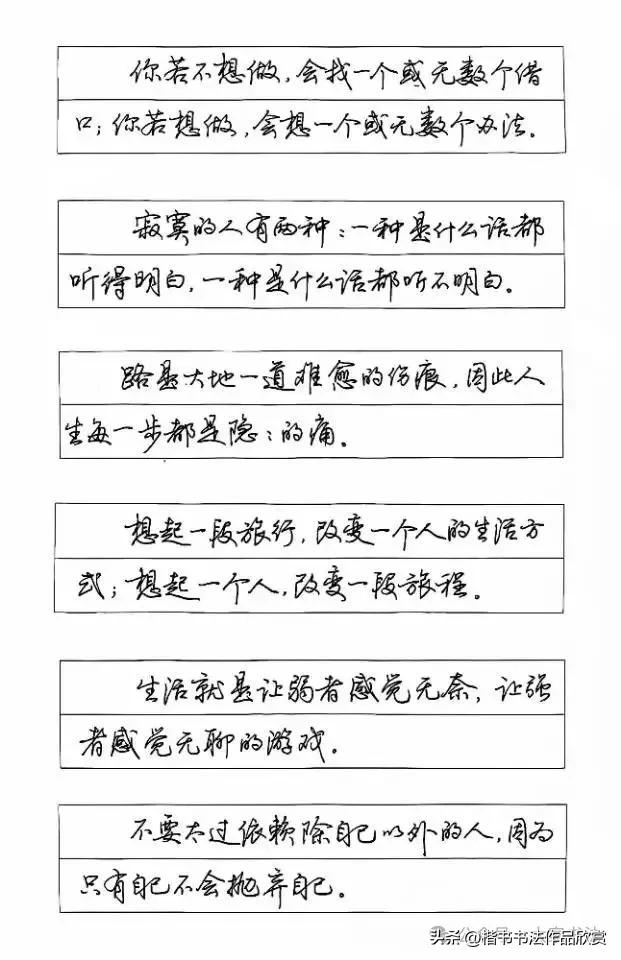 你若不想做，会找一个或无数个借
口；你若想做，会想一个或无数个办法。
寂寞的人有两种：一种是什么话都
听得明白，一种是什么话都听不明白。
路是大地一道难愈的伤痕，因此人
生每一步都是隐：的痛。
想起一段旅行，改变一个人的生活方
式；想起一个人，改变一段旅程。
生活就是让弱者感觉无奈，让强
者感觉无聊的游戏。
不要太过依赖除自己以外的人，因为
只有自己不会抛弃自己。
头条@楷书书法作品欣赏